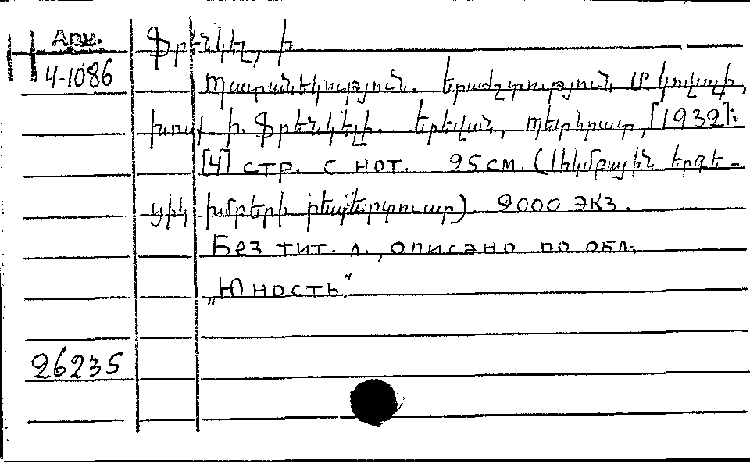 Арм.
4-1086
Ֆրենկել, Ի.
Պատանեկություն. Երաժշտություն Մ. Կովալի,
խոսք Ի. Ֆրենկելի. Երևան, Պետհրատ, [1932]:
[4] стр. с нот. 25 см. (Ակմբային երգե-
ցիկ խմբերի ռեպերտուար) 2000 экз.
Без тит. л., описано по обл.
„Юность."
26235